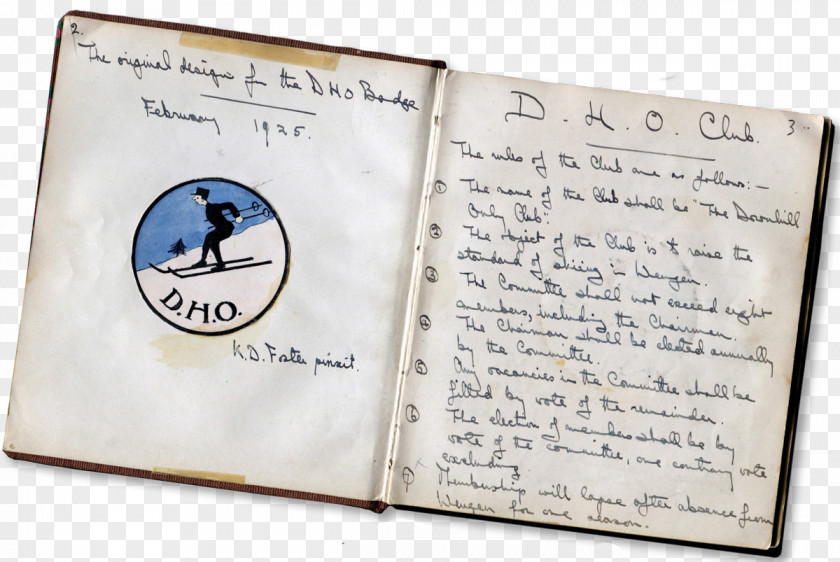 2.
The original design for the DHO Badge
February 1925.
D.H.O.
K.D. Foster pinxit.
D. H. O. Club.
3
The rules of the Club are as follows:-
① The name of the Club shall be "The Downhill
Only Club".
② The object of the Club is to raise the
standard of skiing in Wengen.
③ The Committee shall not exceed eight
members, including the Chairman.
④ The Chairman shall be elected annually
by the Committee.
⑤ Any vacancies in the Committee shall be
filled by vote of the remainder.
⑥ The election of members shall be by
vote of the committee, one contrary vote
excluding
⑦ Membership will lapse after absence from
Wengen for one season.